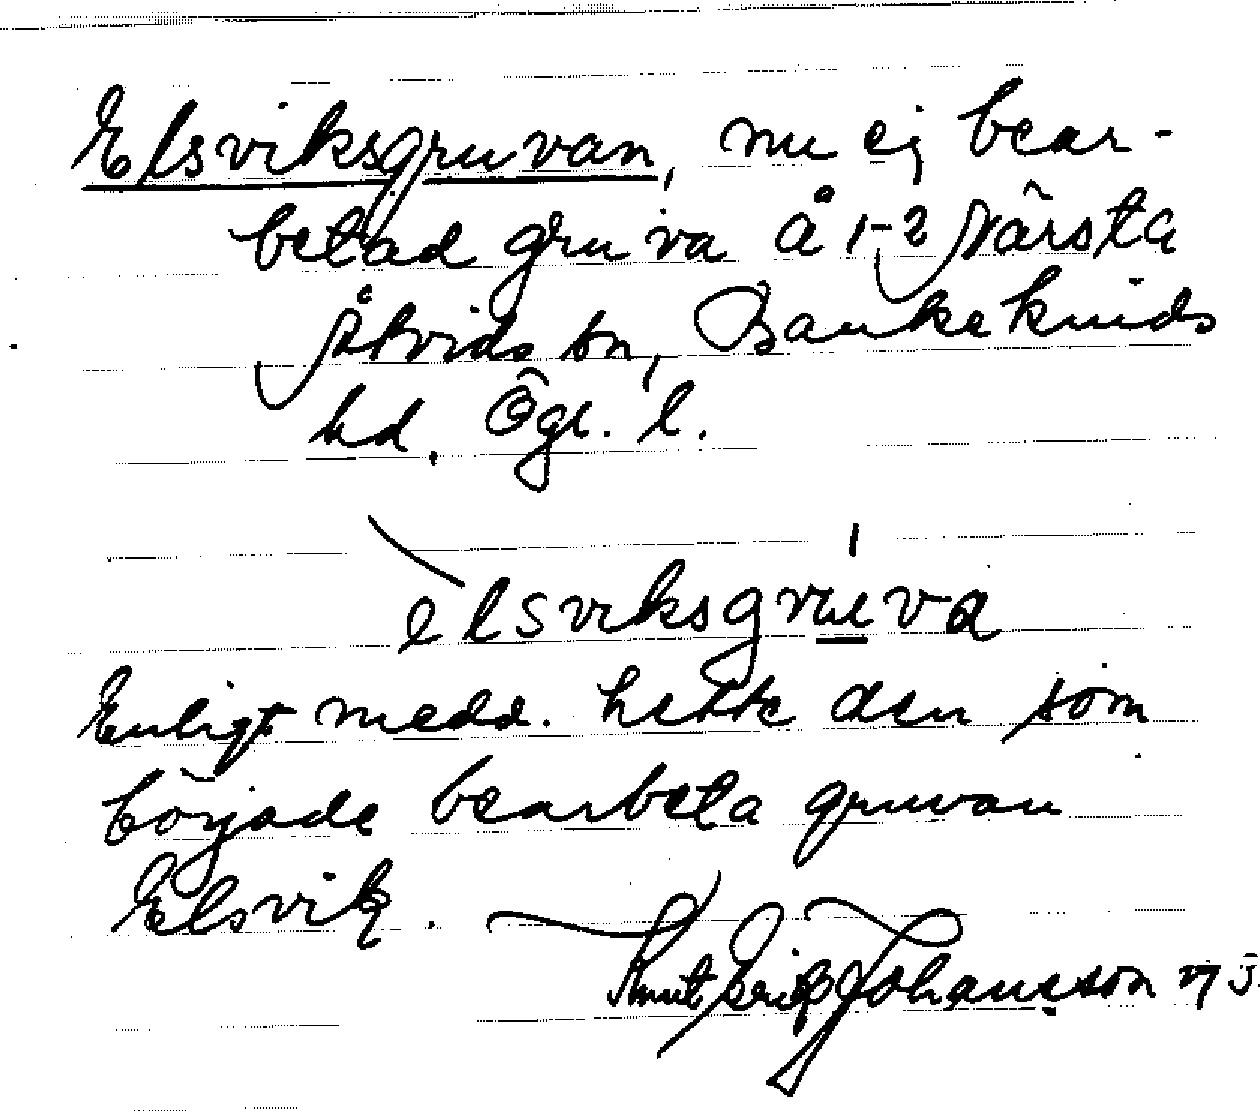 Elsviksgruvan, nu ej bear-
betad gruva å 1-2 Närsta
Åtvids sn, Bankekinds
hd. Ögl. l.
elsviksgruva
Enligt medd. hette den som
började bearbeta gruvan
Elsvik.
Knut Erik Johansson